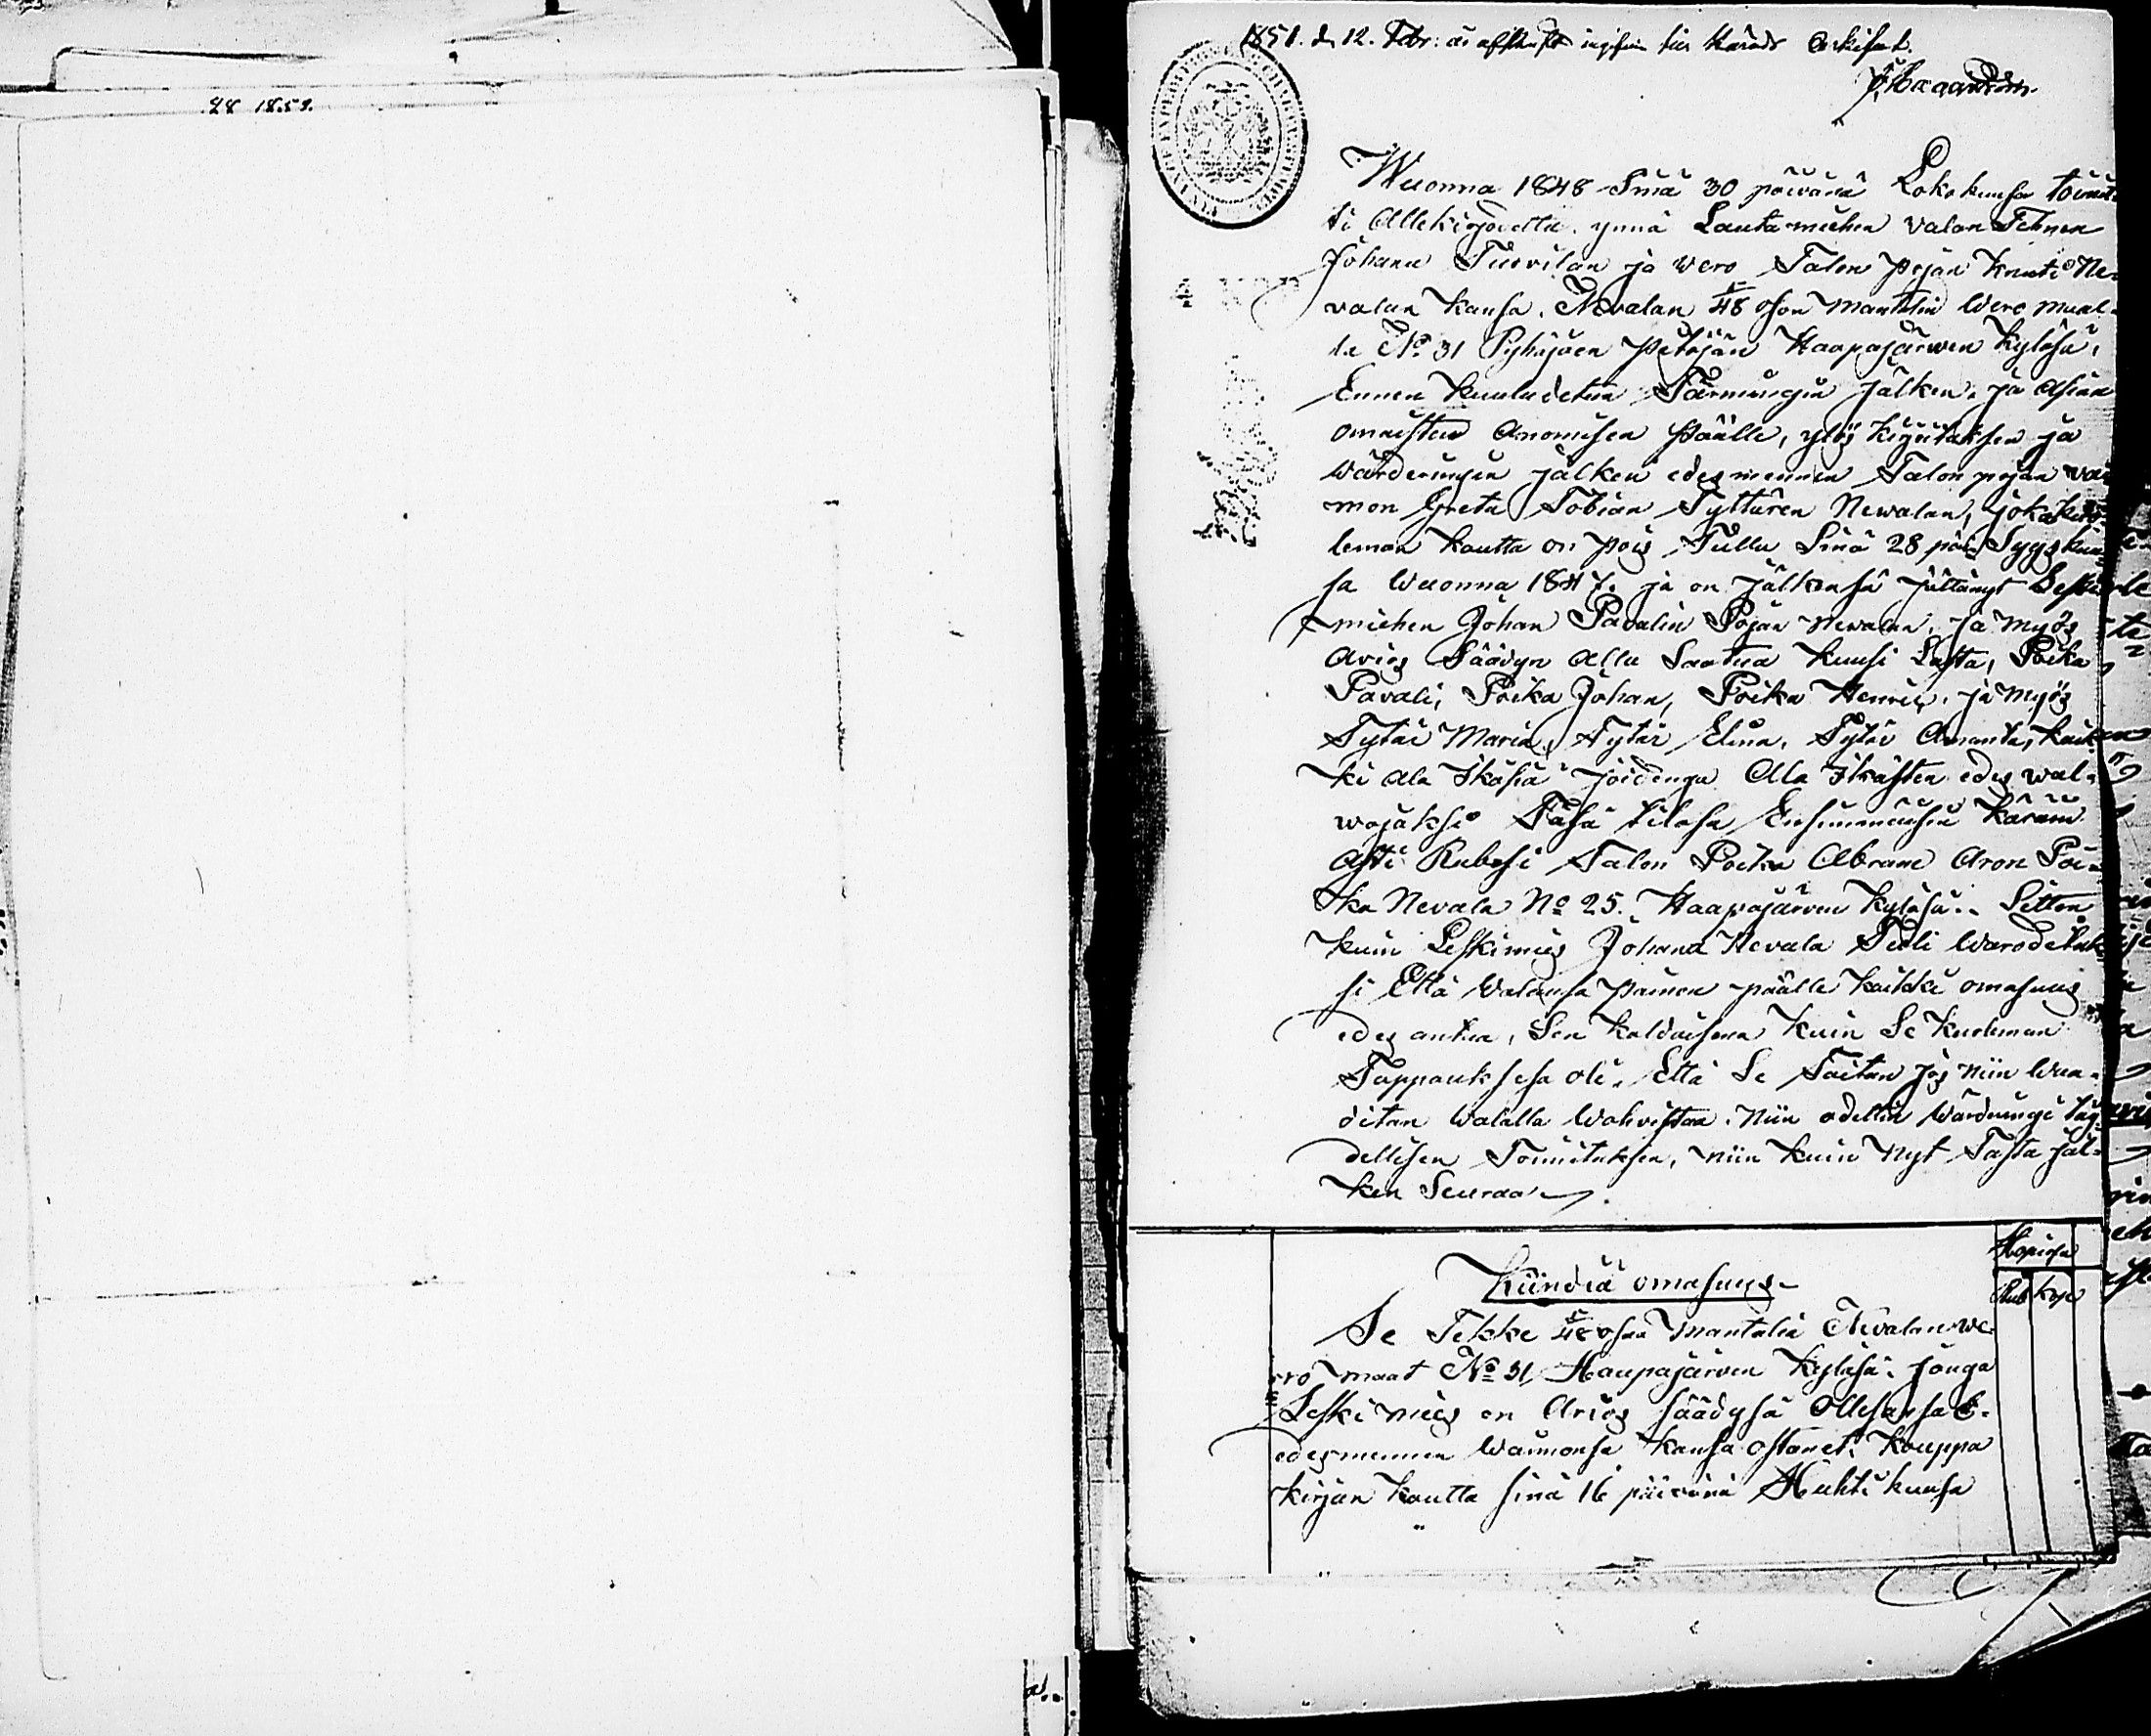 28 1851.
1851. d. 12. Febr: är afskrift ingifven till Härads Arkivet.
Wuonna 1848 Sinä 30 päivänä Lokakuusa toimit-
ti Allekirjoitettu, ynnä Lautamiehen valan Tehnen
Johana Tuorilan ja vero Talon pojan Knuti Ne-
valan kansa, Nevalan 5/48 osan Mantalin Wero maal-
la No 31 Pyhäjoen pitäjän Haapajärwen kyläsä,
Ennen kuulutetun Tärmingin jälken, ja Asian
omaisten Anomisen päälle, ylös kirjoituksen ja
Wärderingin jälken edesmennen Talon pojan vai
mon Greta Tobian Tyttären Newalan, joka kuo-
leman kautta on pois Tullu Sinä 28 päi Syyskuu-
sa Wuonna 1847. ja on jälkensä jättänyt Leski
miehen Johan Pavalin Pojan Newalan, ja myös
Avios Säädyn Alla Saatua kuusi Lasta, Poika
Pavali, Poika Johan, Poika Henric, ja myös
Tytär Maria, Tytär Elina, Tytär Amanta, kaik-
ki ala Ikäsiä joidenga Alla Ikäisten edes wal-
wojaksi Täsä tilasa Ensimmäisin käräin
Asti Rubesi Talon Poika Abram Aron Poi-
ka Nevala No 25. Haapajärven kyläsä. Sitten
kuin Leskimies Johana Nevala Tuli Warodetuk
si Että Walansa painon päälle kaikki omasuus
edes antaa, Sen kaldaisena kuin Se kuoleman
Tappauksesa oli, Että Se Taitan jos niin Waa-
ditan Walalla Wahvistaa. Niin odettin Wärderingi Täy
dellisen Toimituksen, niin kuin Nyt Tästä jäl-
ken Seuraa.
Hopiasa
Rub kop
Kiindiä omasuus.
Se Tekke 5/48 osan Mantalia Nevalan we-
ro maat No 31 Haapajärven kyläsä. jonga
Leskimies on Avios säädysä Ollesansa
edesmennen Waimonsa kansa ostanet. kauppa
kirjan kautta sinä 16 päivänä Huhti kuusa